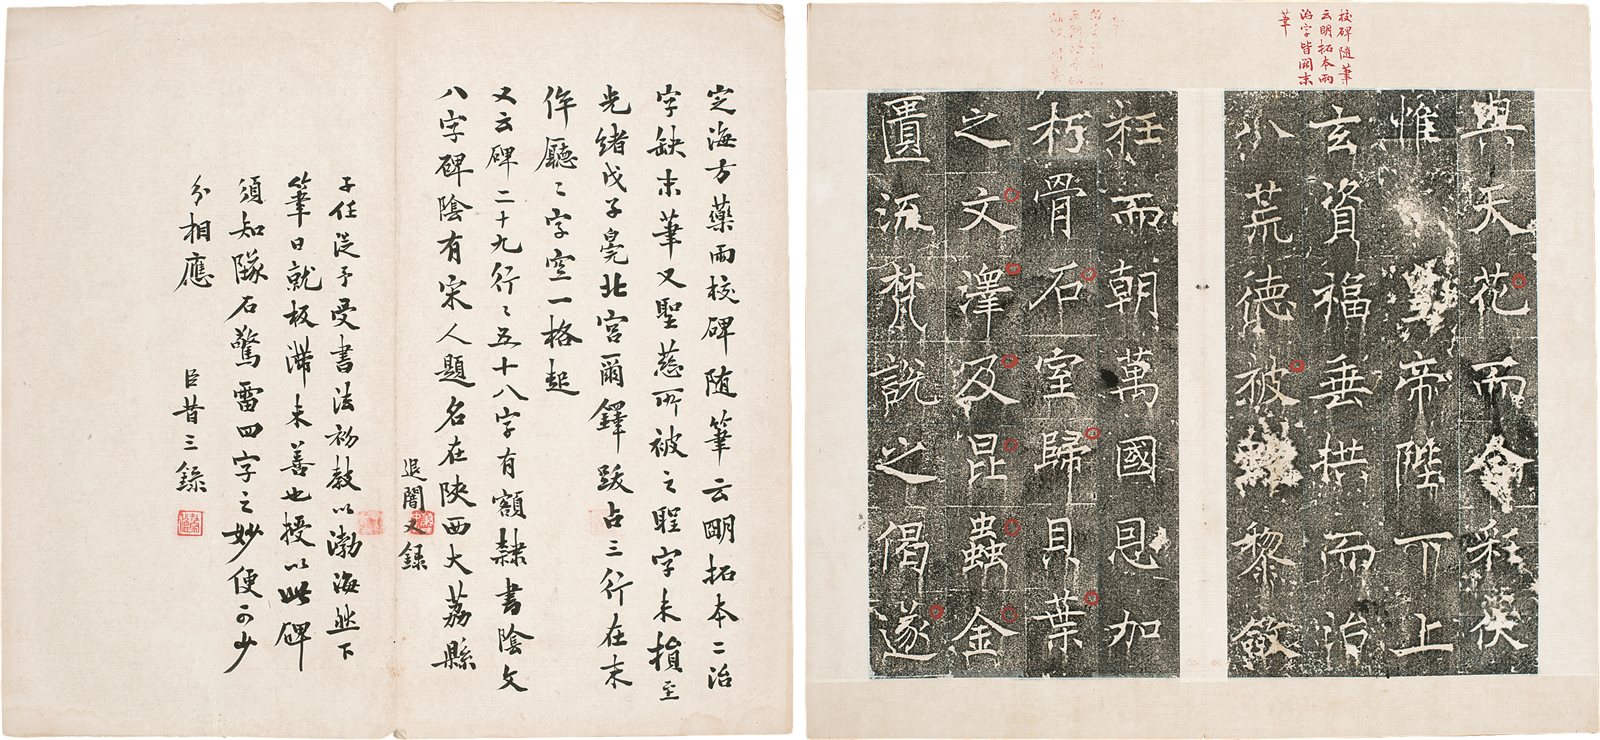 定海方藥雨校碑随筆云明拓本二治
字缺末筆又聖慈所被之聖字未損至
光緒戊子亳北宮爾鐸跋占三行在末
侔廳二字空一格起
又云碑二十九行二五十八字有額隸書陰文
八字碑陰有宋人題名在陝西大荔縣
退闇又錄
子任從予受書法初教以渤海
筆日就板滯未善也授以此碑
須知隊石驚雷四字之妙便可少
分相應
臣昔三錄
校碑随筆
云明拓本兩
治字皆闕末
筆
與天花而合彩伏
惟皇帝陛下上
玄資福垂拱而治
八荒德被黔黎斂
衽而朝萬國恩加
朽骨石室歸貝葉
之文澤及昆蟲金
匱流梵說之偈遂